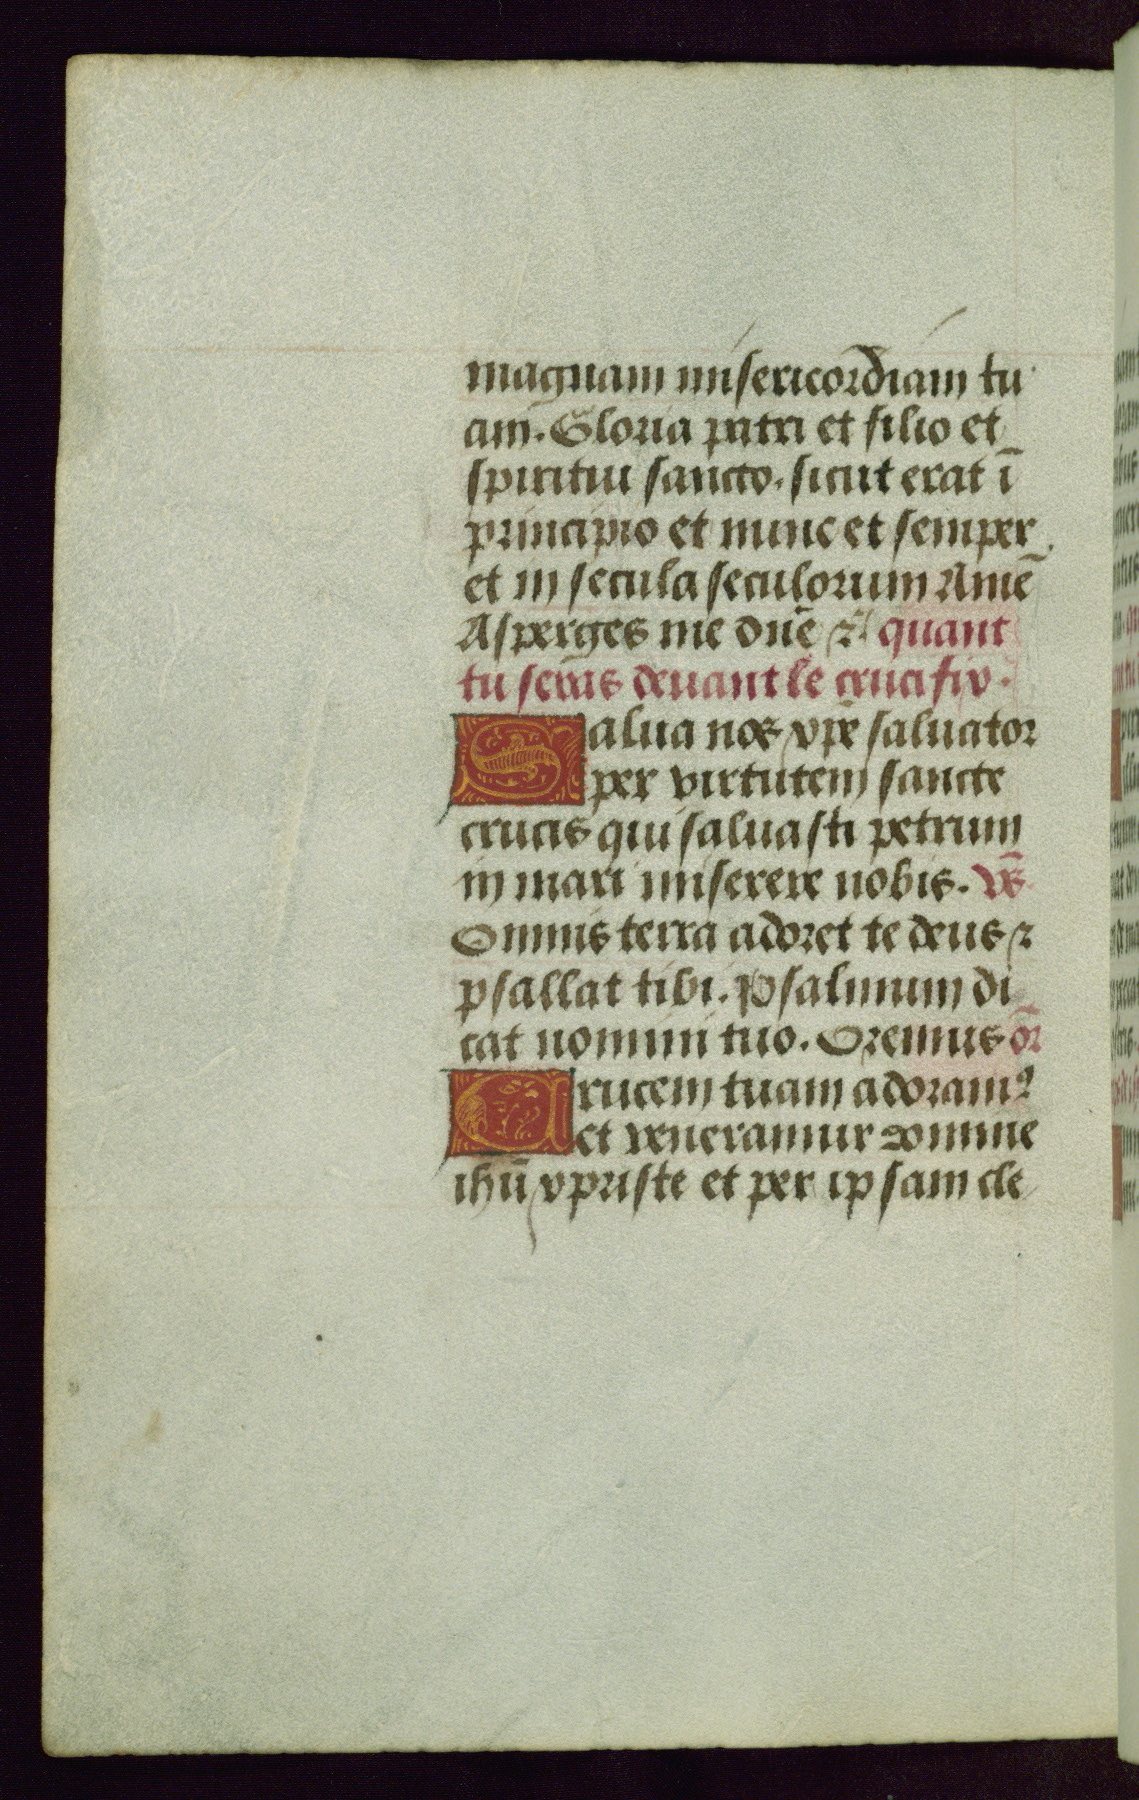 magnam misericordiam tu
am. Gloria patri et filio et
spiritui sancto. sicut erat ī
principio et nunc et semper
et in secula seculorum Amē
Asperges me dn̄e ⁊ quant
tu seras deuant le crucifix.
Salua nos xp̄e saluator
per virtutem sancte
crucis qui saluasti petrum
in mari miserere nobis. vs̄
Omnis terra adoret te deus ⁊
psallat tibi. Psalmum di
cat nomini tuo. Oremus or̄
Crucem tuam adoramꝰ
et veneramur domine
ihū xpriste et per ipsam cle